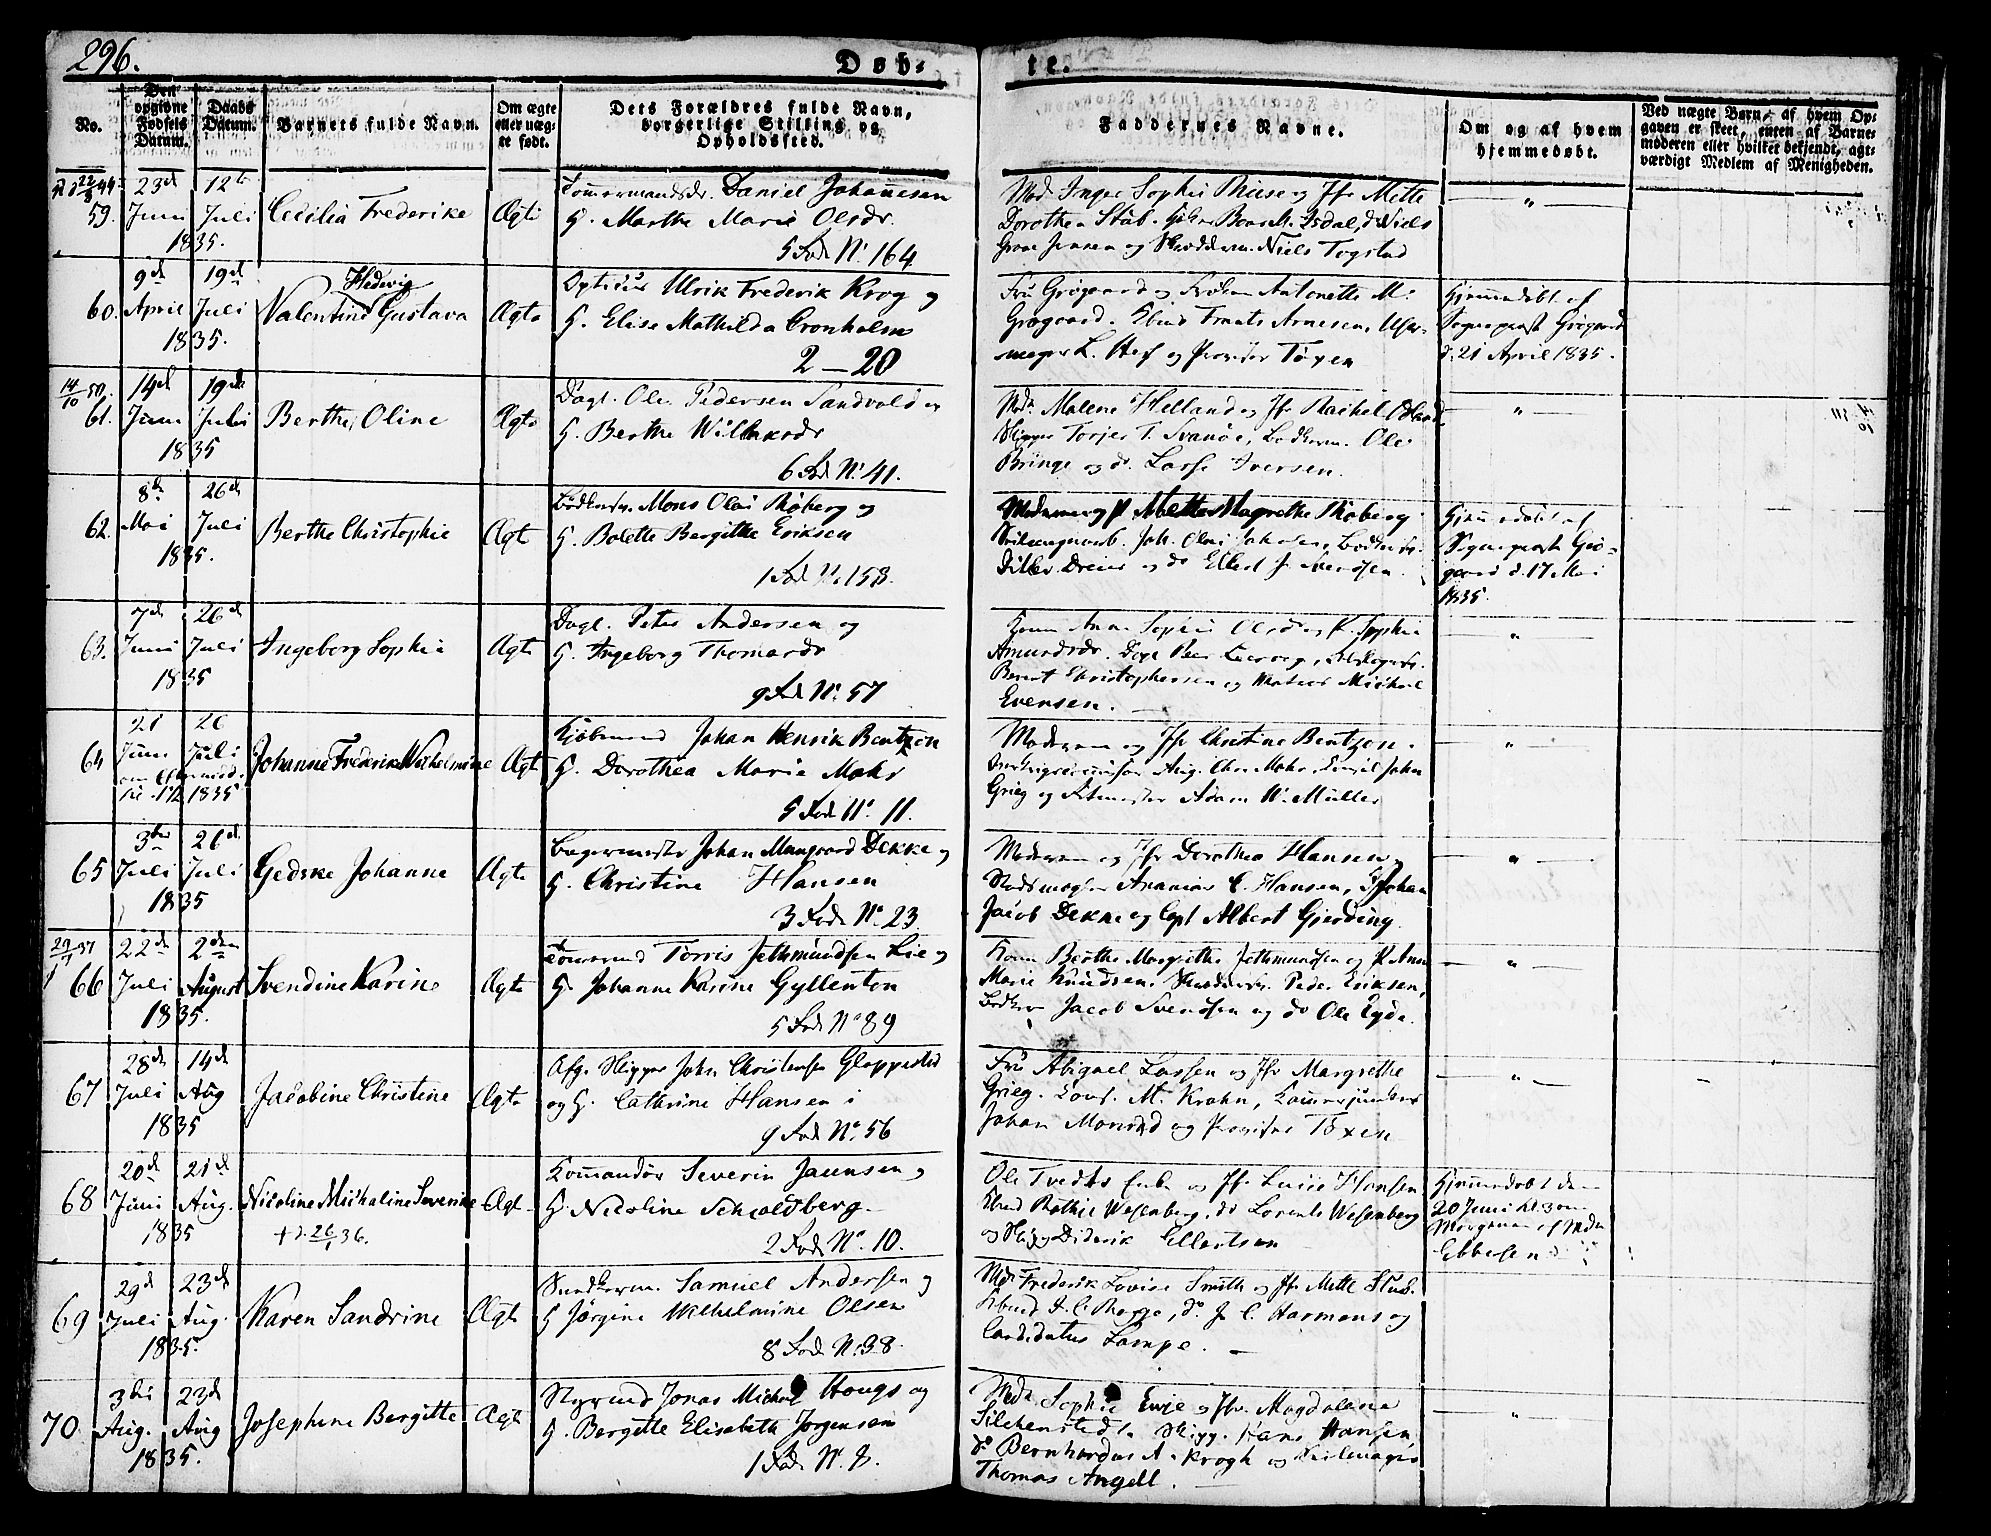 296.
Døb-
te.
No.
Den opgivne Fødsels Datum.
Daabs Datum.
Barnets fulde Navn.
Om ægte eller uægte født.
Dets Forældres fulde Navn, borgerlige Stilling og Opholdssted.
Faddernes Navne.
Om og af hvem hjemmedøbt.
Ved uægte Børn, af hvem Opgaven er skeet, enten af Barnemoderen eller hvilket bekjendt, agtværdigt Medlem af Menigheden.
59.
23d Juni 1835.
12te Juli
Cecilia Frederike
Ægte
Daniel Johannesen
G. Marthe Marie Olsdr.
5 Fod. N. 164
Mad. Inger Sophie Friese og Jfr Mette
Dorothea Stub. Isdal, do Niels
Grove Jensen og Niels Togstad
60.
9d April 1835.
19d Juli
Hedevig
Valentine Gustava
Ægte
Opticus Ulrik Frederik Krog og
G. Elise Mathilda Cronholm
2 - 20
Fru Grøgaard og Frøken Antonette M.
Grøgaard. Kbmd Frants Arnesen, Uhr-
mager L. og Provisor Toxen
Hjemmedøbt af
Sognepræst Grøgaard
d. 21 April 1835.
14/10 50.
61.
14d Juni 1835
19de Juli
Berthe Oline
Ægte
Dagl. Ole Pedersen Sandvold og
G. Berthe Willaksdr
6 Fod. N. 41.
Mad. Malene Helland og Jfr Rachel
Skipper Torjer T. Svanøe, Bødkerm. Ole
Bringe og do. Lasse Iversen.
62.
8de Mai 1835.
26d Juli
Berthe Christophie
Ægte
Mons Olai Raberg og
G. Bolette Bergitte Eriksen
1 Fod. N. 153.
Moderen og P. Mette Magrethe Raberg
Joh. Olai
Dreier og do Ellert J. Svendsen.
Hjemmedøbt af
Sognepræst Grø-
gaard d. 17 Mai
1835.
63.
7de Juni 1835
26d Juli
Ingeborg Sophie
Ægte
Dagl. Peter Andersen og
G. Ingeborg Thomasdr
9 Fod. N. 57
Kone Anne Sophie Olsdr og P. Sophie
Amundsdr. Dagl. Peer
Berent Christophersen og Matros Michael
Evensen.
64
21 Juni 1835
26 Juli
Johanne Frederike Wilhelmine
Ægte
Kjøbmand Johan Henrik Bentzon
G. Dorothea Marie Mohr
5 Fod. N. 11.
Moderen og Jfr Christine Bentzon.
Aug. Chr. Mohr, Consul John
Grieg og Adam W. Müller
65
3die Juli 1835
26d. Juli
Gedske Johanne
Ægte
Bagermester Johan Mungaard Dekke og
G. Christine Hansen
3 Fod. N. 23
Moderen og Jfr Dorothea Hansen,
Ananias C. Hansen, Johan
Jacob Dekke og Capt Albert Gjerding.
66
22de Juli 1835.
2den August
Svendine Karine
Ægte
Torris Jethmundsen Lie og
G. Johanne Karine Gyllenton
5 Fod. N. 89
Kone Berthe Margrethe Jethmundsen og P. Anne
Marie Knudsen. Peder Eriksen,
Bødker Jacob Svendsen og do Ole Eyde.
67
28de Juli 1835
14d Aug
Jacobine Christine
Ægte
Afg. Skipper John Christensen Gloppested
og G. Cathrine Hansen
9 Fod. N. 56
Fru Abigael Lassen og Jfr Margrethe
Grieg. Cons. M. Krohn,
Johan Monsrud og Provisor Toxen
68
20d Juni 1835
21d Aug.
Nicoline Michaline Severine
+ d. 26/1 36.
Ægte
Commandør Severin Jaensen og
G. Nicoline Schioldberg.
2 Fod. N. 10.
Ole Tvedts Enke og Jfr Lucie Hansen
Kbmd Rathie Wesenberg, do Lorents Wesenberg
og Skipp Diderik Ellertsen
Hjemmedøbt den
20 Juni kl. 3 om
Morgenen af Mdm
Ebbesen
69
29d Juli 1835.
23de Aug.
Karen Sandrine
Ægte
Samuel Andersen og
G Jørgine Wilhelmine Olsen
8 Fod. N. 38.
Md Frederike Lovise Smith og Jfr Mette Stub.
Kbmd J. C. Rogge, do. J C. Harmens og
Candidatus Lampe.
70
3die Aug. 1835.
23d Aug
Josephine Bergitte
Ægte
Styrmd Jonas Michael Hougs og
G. Bergitte Elisabeth Jørgensen
1 Fod. N. 8.
Md Sophie Evje og Jfr. Magdalene
Silchenstedt. Skipp. Hans Hansen
do Bernhardus A. Krogh og
Thomas Angell.